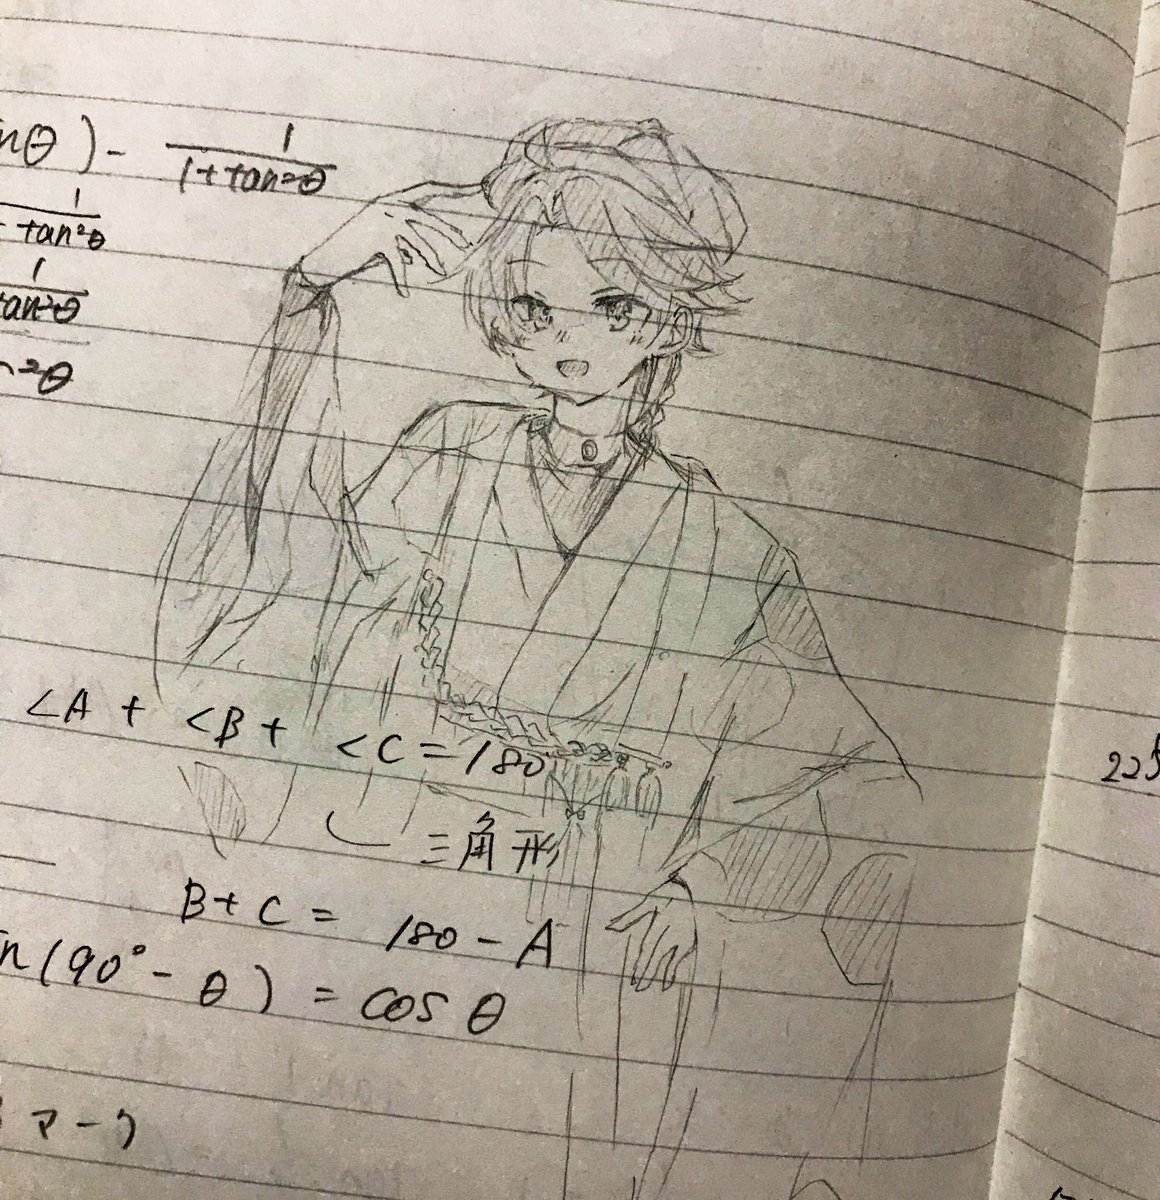 nθ) - 1/(1+tan²θ)
1/tan²θ
1/tan²θ
²θ
∠A + ∠B + ∠C = 180
三角形
B + C = 180 - A
n(90° - θ) = cos θ
マーク
225